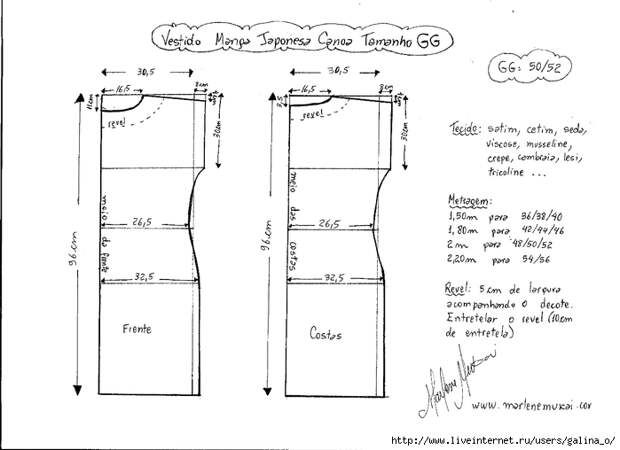 Vestido Manga Japonesa Canoa Tamanho GG
GG: 50/52
30,5
2cm
16,5
11cm
revel
30cm
96cm
26,5
meio da frente
32,5
Frente
30,5
2cm
16,5
revel
30cm
96cm
26,5
meio das costas
32,5
Costas
Tecido: satim, cetim, seda,
viscose, musseline,
crepe, cambraia, lesi,
tricoline ...
Metragem:
1,50m para 36/38/40
1,80m para 42/44/46
2m para 48/50/52
2,20m para 54/56
Revel: 5cm de largura
acompanhando o decote.
Entretelar o revel (10cm
de entretela)
Marlene Mukai
www.marlenemukai.com
http://www.liveinternet.ru/users/galina_o/